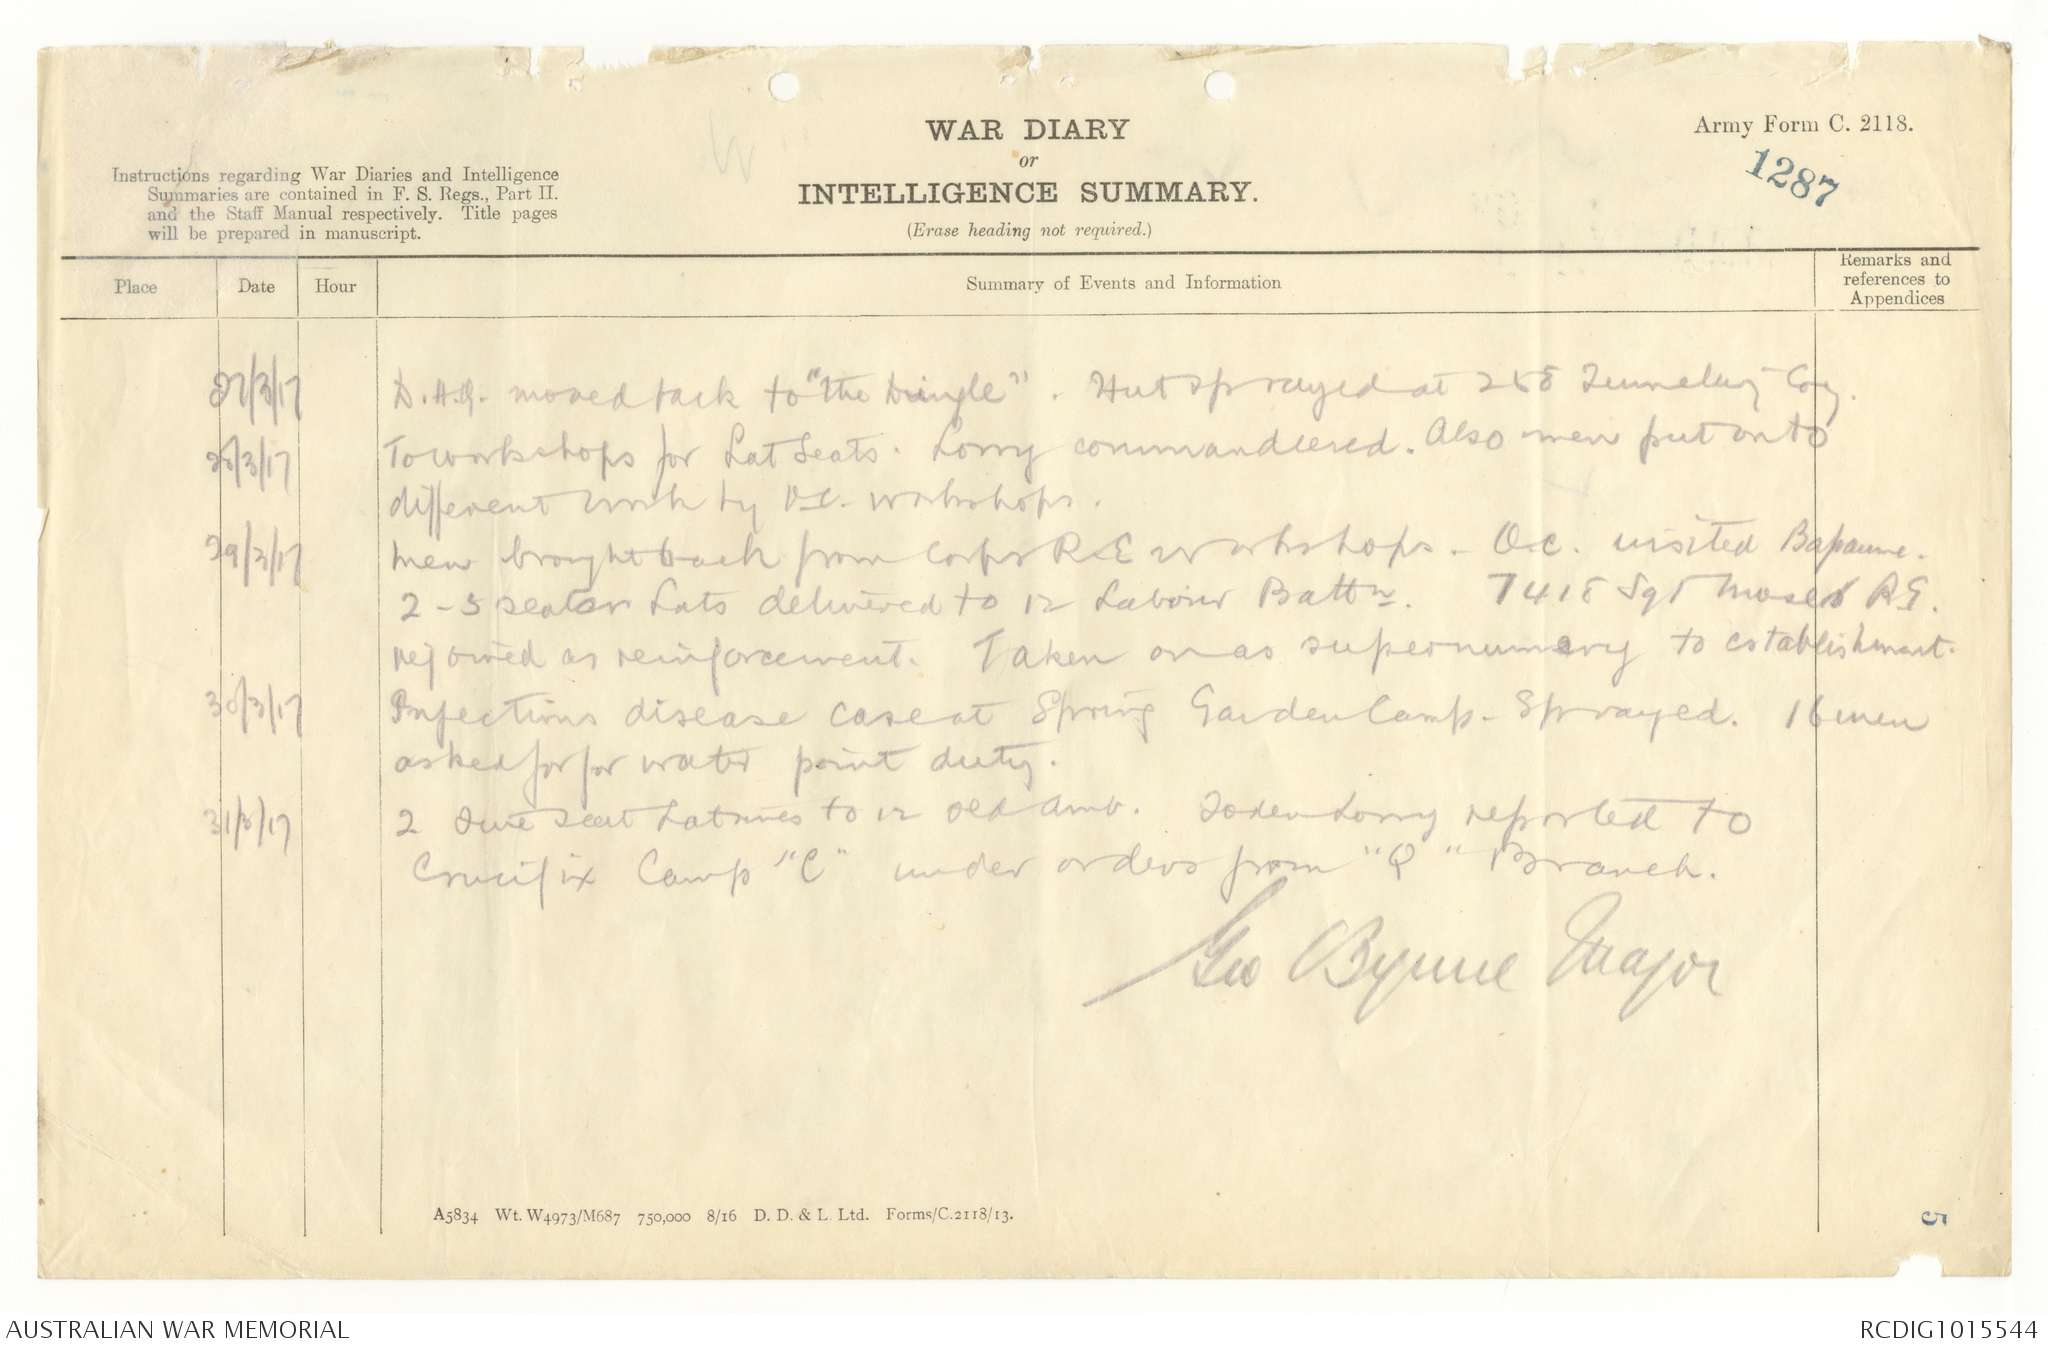 WAR DIARY
or
INTELLIGENCE SUMMARY.
(Erase heading not required.)
Army Form C. 2118.
1287
Instructions regarding War Diaries and Intelligence
Summaries are contained in F. S. Regs., Part II.
and the Staff Manual respectively. Title pages
will be prepared in manuscript.
Place
Date
Hour
Summary of Events and Information
Remarks and
references to
Appendices
27/3/17 D.H.Q. moved back to "the Dingle". Hut sprayed at 258 Tunnelling Coy.
28/3/17 To workshops for Lat Seats. Lorry commandeered. Also men put on to
different work by O.C. workshops.
29/3/17 Men brought back from Corps R.E workshops. O.C. visited Bapaume.
2 - 5 seater Lats delivered to 12 Labour Battn. 7418 Sgt Moses R.G.
rejoined as reinforcement. Taken on as supernumery to establishment.
30/3/17 Infectious disease case at Spring Garden Camp - Sprayed. 16 men
asked for for water point duty.
31/3/17 2 five seat Latrines to 12 Fld Amb. Foden Lorry reported to
Crucifix Camp "C" under orders from "Q" Branch.
Geo Byrne Major
A5834 Wt. W4973/M687 750,000 8/16 D. D. & L. Ltd. Forms/C.2118/13.
5
AUSTRALIAN WAR MEMORIAL
RCDIG1015544